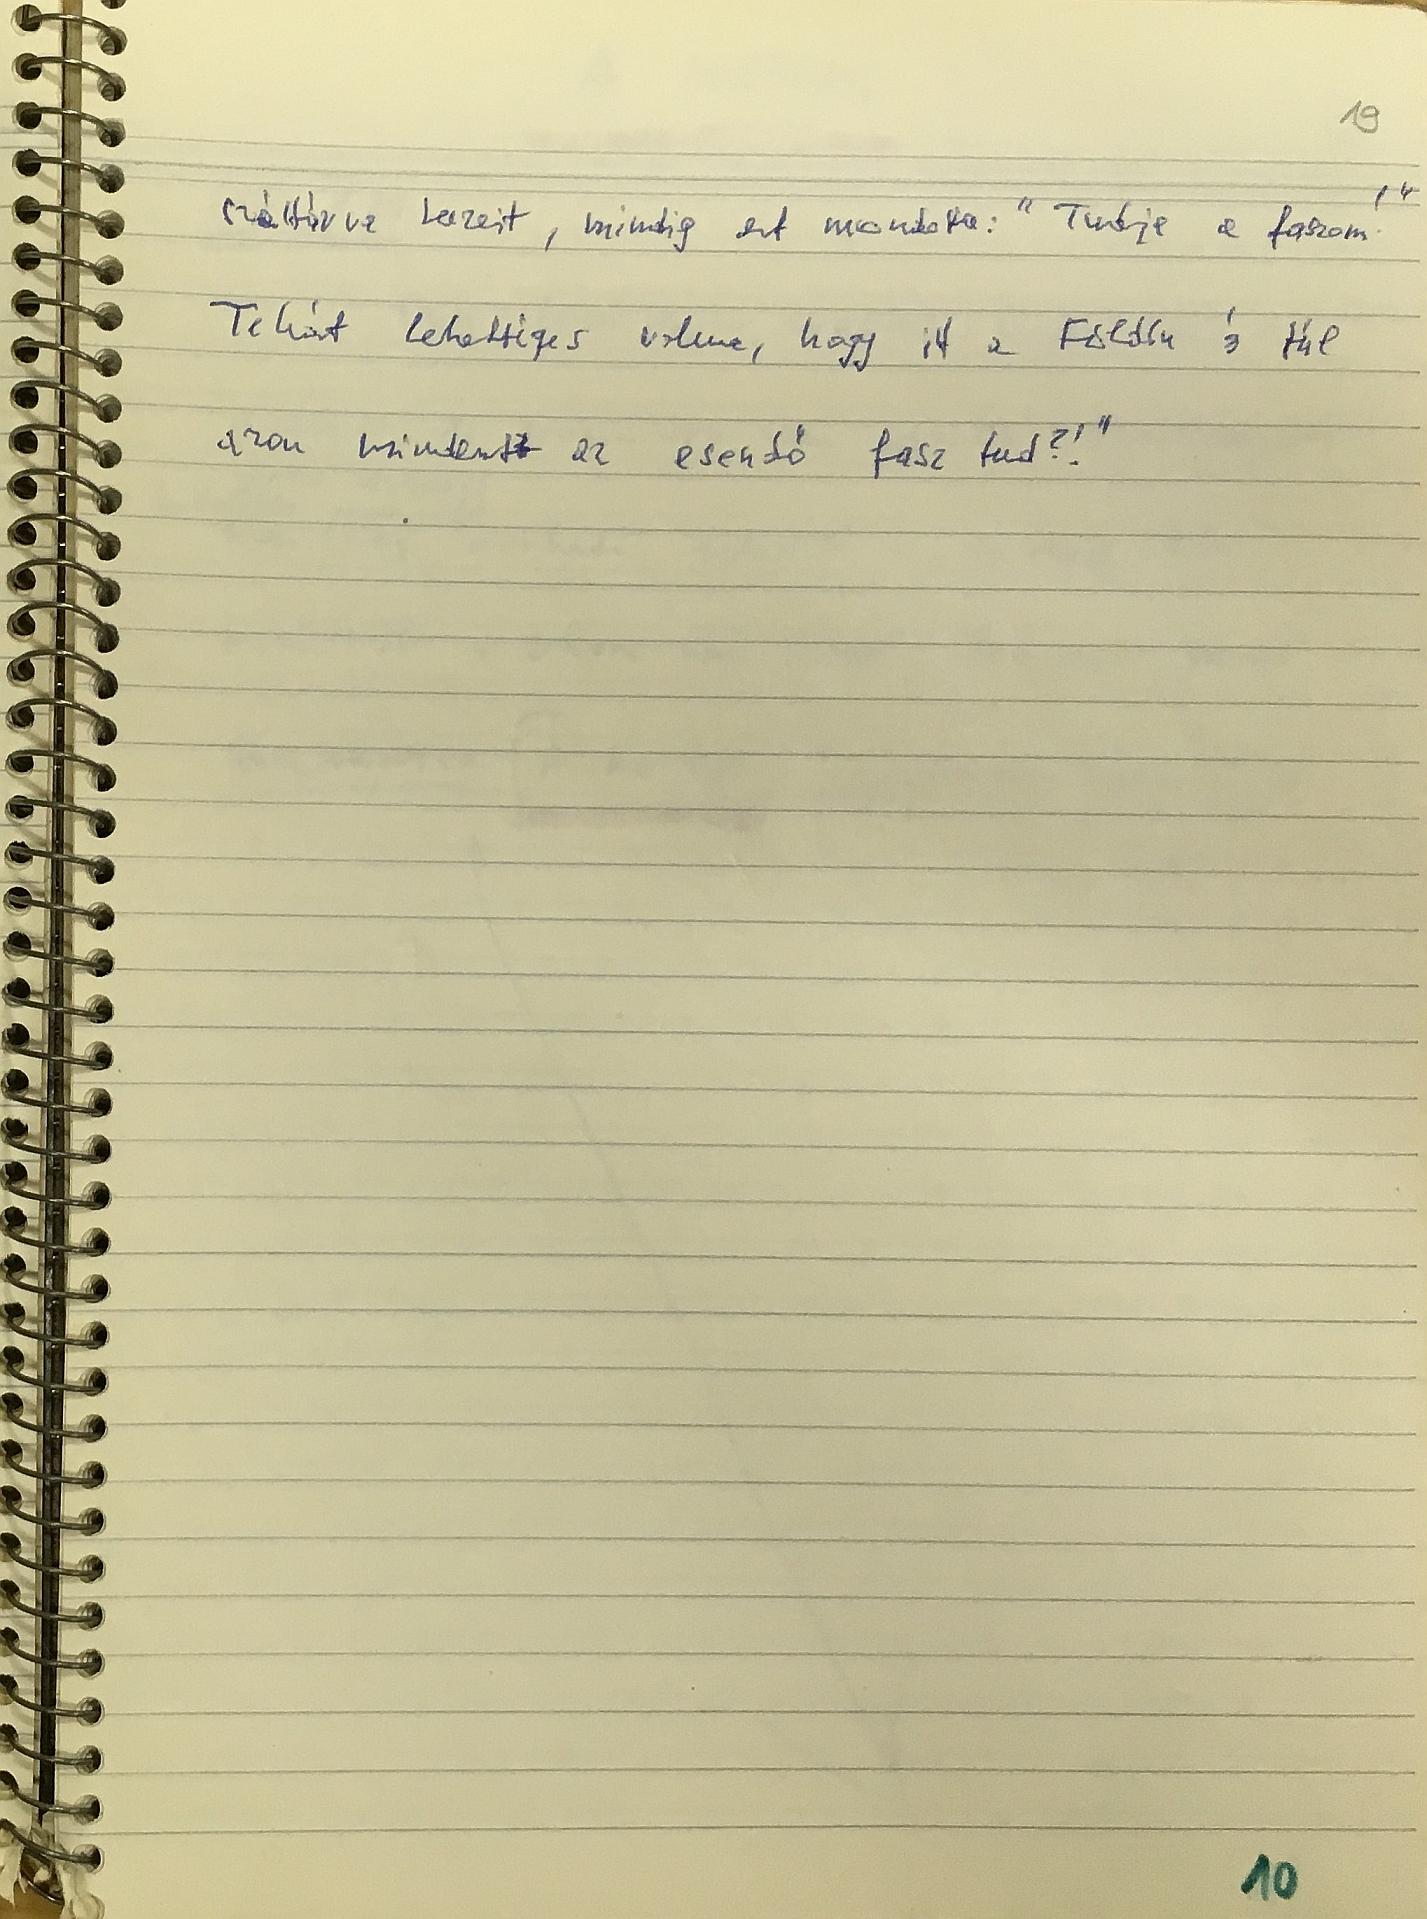 19
széttárva kezeit, mindig azt mondotta: "Tudja a faszom!"
Tehát lehetséges volna, hogy itt a Földön s túl
azon mindent az esendő fasz tud?!"
10